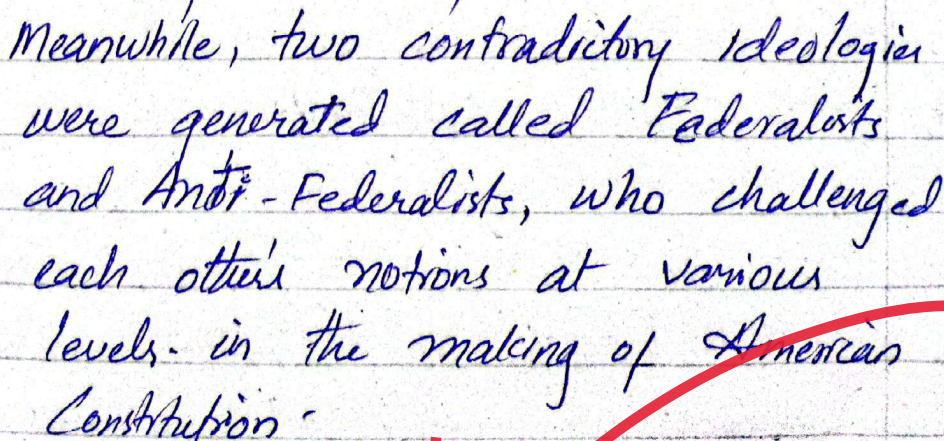 Meanwhile, two contradictory ideologies
were generated called Federalists
and Anti-Federalists, who challenged
each other's notions at various
levels. in the making of American
Constitution.